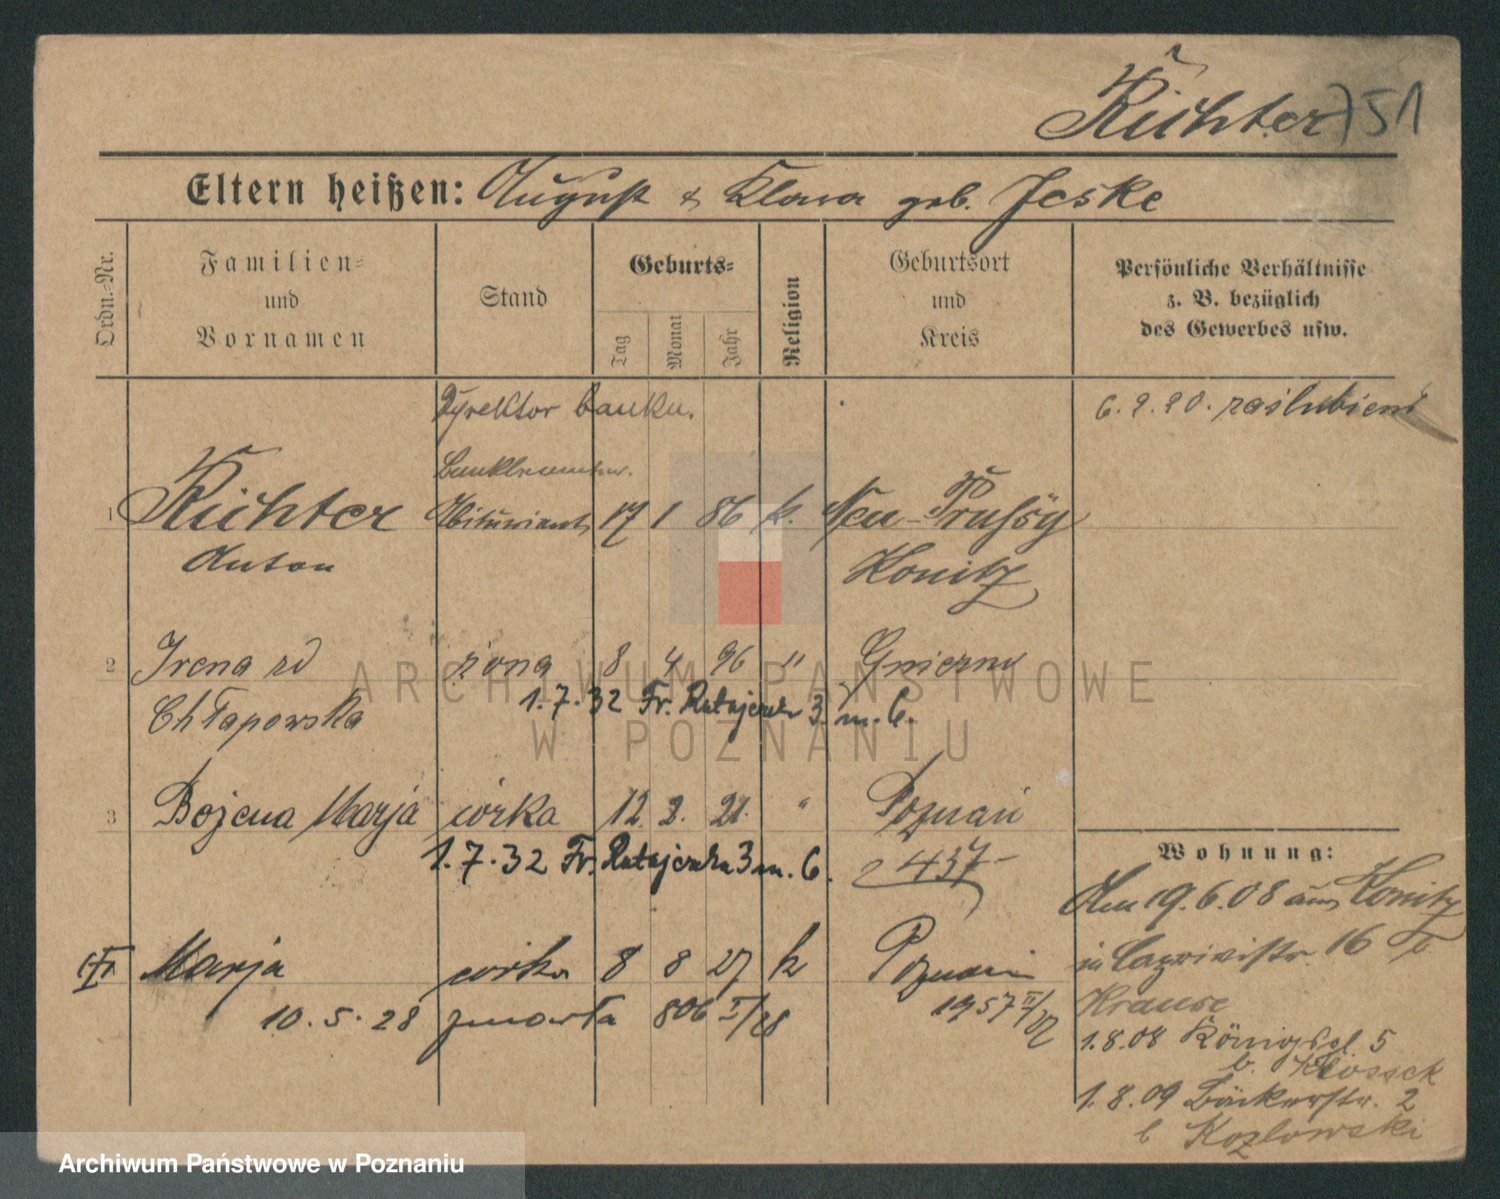 Richter 751
Eltern heißen: August & Klara geb. Jeske
Ordn.-Nr.
Familien-
und
Vornamen
Stand
Geburts-
Tag
Monat
Jahr
Religion
Geburtsort
und
Kreis
Persönliche Verhältnisse
z. B. bezüglich
des Gewerbes usw.
Dyrektor banku.
6.9.20. zaślubieni
Bankbeamter.
1 Richter Abiturient 17 1 86 k. Neu-Prussy
Anton Konitz
2 Irena zd żona 8 4 96 " Gniezno
Chłapowska 1.7.32 Fr. Ratajczaka 3 m. 6.
3 Bożena Marja córka 12. 2. 21. " Poznań
1.7.32 Fr. Ratajczaka 3 m. 6. 437
Wohnung:
Am 19.6.08 aus Konitz
in 16 b.
Krause
Marja córka 8 8 27 k Poznań
10.5.28 zmarła 806 I/28 1957 II/27
1.8.08 Königspl 5
b.
1.8.09 Bäckerstr. 2
b Kozlowski
ARCHIWUM PAŃSTWOWE
W POZNANIU
Archiwum Państwowe w Poznaniu